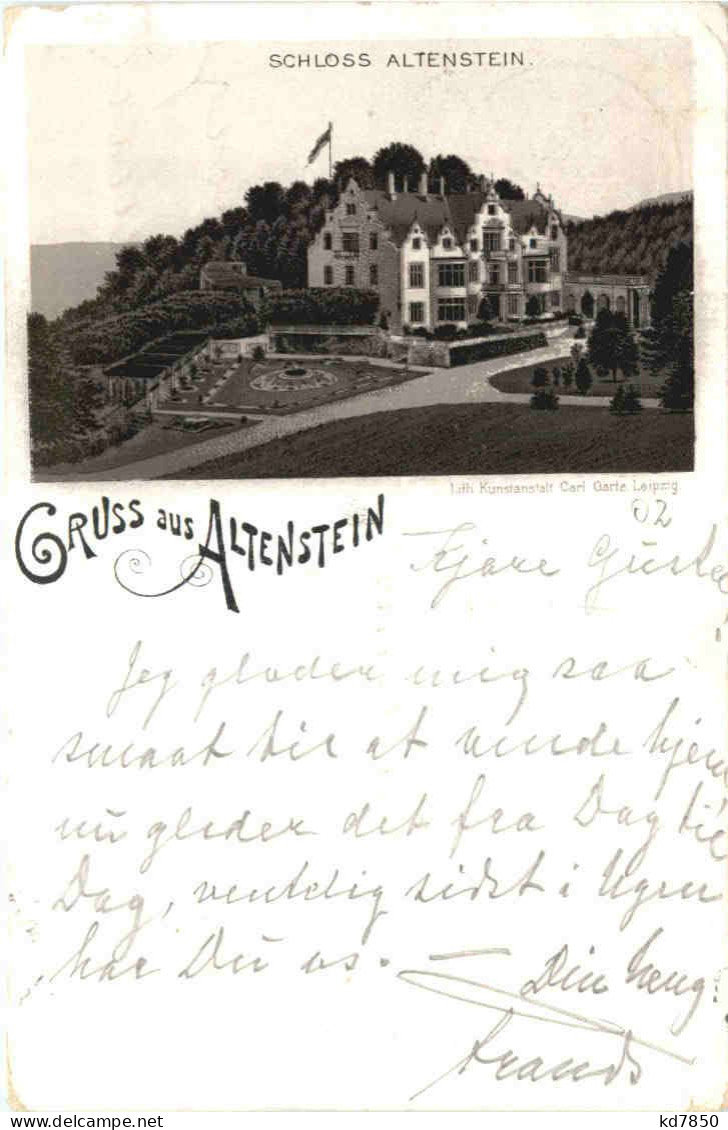 SCHLOSS ALTENSTEIN.
Lith. Kunstanstalt Carl Garte, Leipzig.
02
GRUSS aus ALTENSTEIN
Kjære Gustav
Jeg glæder mig saa
smaat til at vende hjem
nu glider det fra Dag til
Dag, ventelig sidst i Ugen
har Du os.
Din heng.
kd7850